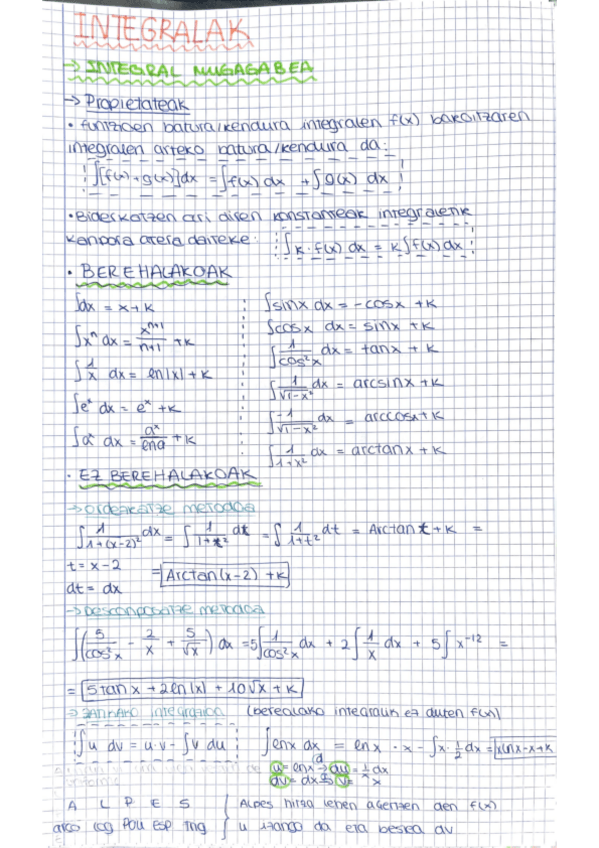 INTEGRALAK
→ INTEGRAL MUGAGABEA
→ Propietateak
• funtzioen batura/kendura integralen f(x) bakoitzaren
integralen arteko batura/kendura da:
∫[f(x)+g(x)]dx = ∫f(x) dx + ∫g(x) dx
• Biderkatzen ari diren konstanteak integraletik
kanpora atera daiteke: ∫k·f(x) dx = k∫f(x) dx
• BEREHALAKOAK
∫dx = x+k
∫sinx dx = -cosx +k
∫xⁿ dx = xⁿ⁺¹/n+1 +k
∫cosx dx = sinx +k
∫1/x dx = ln|x|+k
∫1/cos²x dx = tanx + k
∫eˣ dx = eˣ +k
∫1/√1-x² dx = arcsinx +k
∫aˣ dx = aˣ/lna +k
∫-1/√1-x² dx = arccosx+k
∫1/1+x² dx = arctanx +k
• EZ BEREHALAKOAK
→ Ordezkatze metodoa
∫1/1+(x-2)² dx = ∫1/1+t² dt = ∫1/1+t² dt = Arctan t + k =
t = x-2
= Arctan(x-2) +k
dt = dx
→ Deskonposatze metodoa
∫(5/cos²x - 2/x + 5/√x) dx = 5∫1/cos²x dx + 2∫1/x dx + 5∫x⁻¹² =
= 5tanx + 2ln|x| + 10√x + k
→ ZATIKAKO integrazioa (berealako integralik ez duten f(x))
∫u dv = u·v - ∫v du
∫lnx dx = lnx · x - ∫x·1/x dx = xlnx-x+k
u = lnx → du = 1/x dx
dv = dx → v = x
A L P E S
Alpes hitza lehen agertzen den f(x)
arco log Pol Esp Tng
u izango da eta bestea dv